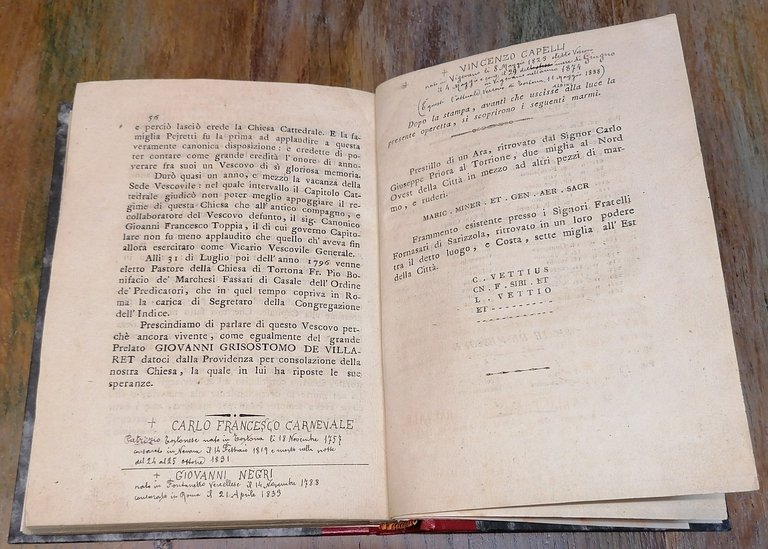 56
e perciò lasciò erede la Chiesa Cattedrale. E la fa-
miglia Pejretti fu la prima ad applaudire a questa
veramente canonica disposizione: e credette di po-
ter contare come grande eredità l'onore di anno-
verare fra suoi un Vescovo di sì gloriosa memoria.
Durò quasi un anno, e mezzo la vacanza della
Sede Vescovile: nel quale intervallo il Capitolo Cat-
tedrale giudicò non poter meglio appoggiare il re-
gime di questa Chiesa che all'antico compagno, e
collaboratore del Vescovo defunto, il sig. Canonico
Gioanni Francesco Toppia, il di cui governo Capito-
lare non fu meno applaudito che quello ch'aveva fin
allora esercitato come Vicario Vescovile Generale.
Alli 31 di Luglio poi dell'anno 1796 venne
eletto Pastore della Chiesa di Tortona Fr. Pio Bo-
nifacio de' Marchesi Fassati di Casale dell'Ordine
de' Predicatori, che in quel tempo copriva in Ro-
ma la carica di Segretaro della Congregazione
dell'Indice.
Prescindiamo di parlare di questo Vescovo per-
chè ancora vivente, come egualmente del grande
Prelato GIOVANNI GRISOSTOMO DE VILLA-
RET datoci dalla Providenza per consolazione della
nostra Chiesa, la quale in lui ha riposte le sue
speranze.
+ CARLO FRANCESCO CARNEVALE
Patrizio Tortonese nato in Tortona li 18 Novembre 1757
consacrato in Novara il 14 Febbraio 1819 e morto nella notte
del 24 al 25 Ottobre 1831
+ GIOVANNI NEGRI
nato in Fontanetto Vercellese il 14 Novembre 1788
consacrato in Roma il 21 Aprile 1833
+ VINCENZO CAPELLI
nato in Vigevano li 8 Maggio 1823 eletto Vescovo
il 4 Maggio e cons. il 29 mese di Giugno
in Vigevano nell'anno 1874
Dopo la stampa, avanti che uscisse alla luce la
presente operetta, si scoprirono i seguenti marmi.
Prestillo di un Ara, ritrovato dal Signor Carlo
Giuseppe Priora al Torrione, due miglia al Nord
Ovest della Città in mezzo ad altri pezzi di mar-
mo, e ruderi.
MARIC . MINER . ET . GEN . AER . SACR
Frammento esistente presso i Signori Fratelli
Fornasari di Sarizzola, ritrovato in un loro podere
tra il detto luogo, e Costa, sette miglia all'Est
della Città.
C . VETTIUS
CN . F . SIBI . ET
L . VETTIO
ET - - - - - - - -
- - - - - - - - - -